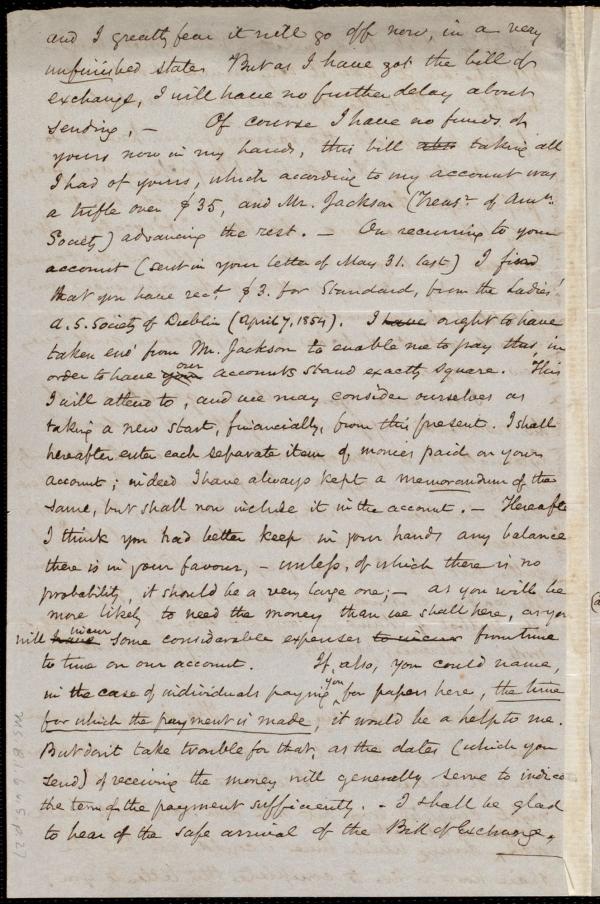 and I greatly fear it will go off now, in a very
unfinished state. But as I have got the bill of
exchange, I will have no further delay about
sending, — Of course I have no funds of
yours now in my hands, this bill also taking all
I had of yours, which according to my account was
a trifle over $35, and Mr. Jackson (Treasr. of Amn.
Society) advancing the rest. — On recurring to your
account (sent in your letter of May 31. last) I find
that you have recd. $3. for Standard, from the Ladies'
A. S. Society of Dublin (April 7, 1854). I have ought to have
taken eno' from Mr. Jackson to enable me to pay this, in
order to have your our accounts stand exactly square. This
I will attend to, and we may consider ourselves as
taking a new start, financially, from this present. I shall
hereafter enter each separate item of monies paid on your
account; indeed I have always kept a memorandum of the
same, but shall now include it in the account. — Hereafter
I think you had better keep in your hands any balance
there is in your favour, — unless, of which there is no
probability, it should be a very large one; — as you will be
more likely to need the money than we shall here, as you
will have incur some considerable expenses to incur from time
to time on our account. If, also, you could name,
in the case of individuals paying you for papers here, the time
for which the payment is made, it would be a help to me.
But don't take trouble for that, as the dates (which you
send) of receiving the money will generally serve to indica
the term of the payment sufficiently. — I shall be glad
to hear of the safe arrival of the Bill of Exchange,